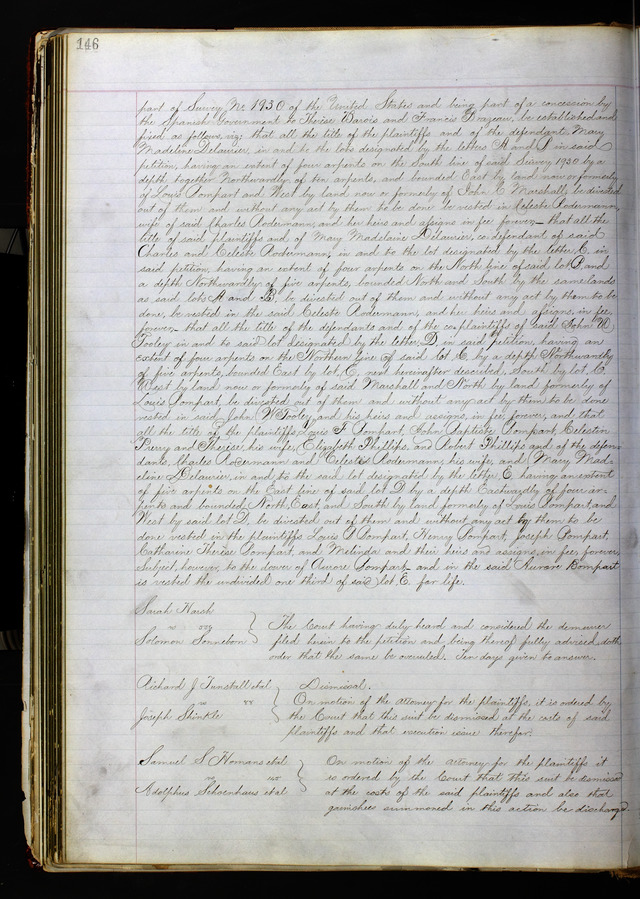 146
part of Survey No 1930 of the United States and being part of a concession by
the Spanish Government to Therese Barois and Francis Brazeau, be established and
fixed as follows, viz; that all the title of the plaintiffs and of the defendants Mary
Madeline Delaurier, in and to the lots designated by the letters A and B in said
petition, having an extent of four arpents on the South line of said Survey 1930 by a
depth together Northwardly of ten arpents, and bounded East by land now or formerly
of Louis Pompart and West by land now or formerly of John C Marshall, be divested
out of them and without any act by them to be done be vested in Celeste Rodermann,
wife of said Charles Rodermann, and her heirs and assigns in fee forever,— that all the
title of said plaintiffs and of Mary Madelaine Delaurier, co defendant of said
Charles and Celeste Rodermann; in and to the lot designated by the letter C in
said petition, having an extent of four arpents on the North line of said lot B and
a depth Northwardly of five arpents, bounded North and South by the same lands
as said lots A and B, be divested out of them and without any act by them to be
done, be vested in the said Celeste Rodermann, and her heirs and assigns, in fee,
forever,— that all the title of the defendants and of the co-plaintiffs of said John W
Tooley in and to said lot designated by the letter D in said petition, having an
extent of four arpents on the Northern line of said lot C, by a depth Northwardly
of five arpents, bounded East by lot E, next hereinafter described, South by lot C,
West by land now or formerly of said Marshall and North by land formerly of
Louis Pompart, be divested out of them and without any act by them to be done
vested in said John W Tooley and his heirs and assigns, in fee, forever, and that
all the title of the plaintiffs Louis F Pompart, John Baptiste Pompart, Celestin
Pierry and Therese, his wife, Elizabeth Phillips, and Robert Phillips and of the defen-
dants, Charles Rodermann and Celeste Rodermann, his wife, and Mary Mad-
eline Delaurier, in and to the said lot designated by the letter E having an extent
of five arpents on the East line of said lot D by a depth Eastwardly of four ar-
pents and bounded North, East, and South by land formerly of Louis Pompart, and
West by said lot D, be divested out of them and without any act by them to be
done vested in the plaintiffs Louis P Pompart, Henry Pompart, Joseph Pompart,
Catharine Therese Pompart, and Melinda and their heirs and assigns, in fee, forever,
subject, however, to the dower of Aurore Pompart— and in the said Aurore Pompart
is vested the undivided one third of said lot E for life.
Sarah Harsh
Solomon Sonneborn
The Court having duly heard and considered the demurrer
filed herein to the petition and being thereof fully advised, doth
order that the same be overruled. Ten days given to answer.
Richard J Tunstall et al
Joseph Shinkle
Dismissal.
On motion of the attorney for the plaintiffs, it is ordered by
the Court that this suit be dismissed at the costs of said
plaintiffs and that execution issue therefor.
Samuel S Homans et al
Adolphus Schoenhaus et al
On motion of the attorney for the plaintiffs it
is ordered by the Court that this suit be dismissed
at the costs of the said plaintiffs and also that
garnishees summoned in this action be discharged.